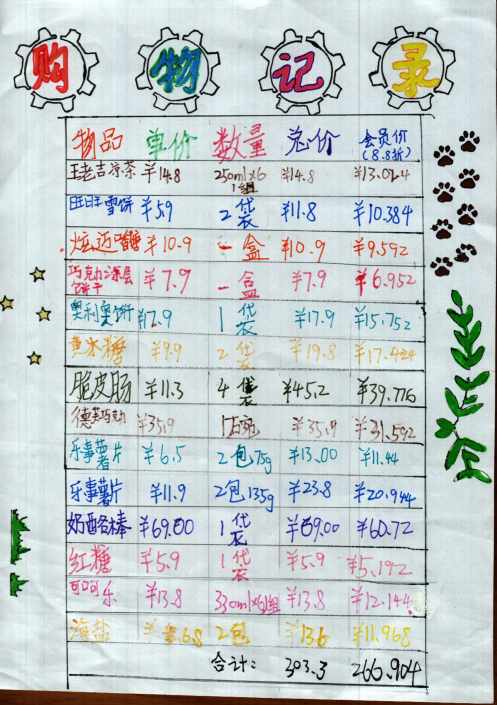 购物记录
物品 单价 数量 总价 会员价(8.8折)
王老吉凉茶 ¥14.8 250ml×6 1组 ¥14.8 ¥13.024
旺旺雪饼 ¥5.9 2袋 ¥11.8 ¥10.384
炫迈口香糖 ¥10.9 一盒 ¥10.9 ¥9.592
巧克力涂层饼干 ¥7.9 一盒 ¥7.9 ¥6.952
奥利奥饼 ¥17.9 1袋 ¥17.9 ¥15.752
黄冰糖 ¥9.9 2袋 ¥19.8 ¥17.424
脆皮肠 ¥11.3 4袋 ¥45.2 ¥39.776
德芙巧克力 ¥35.9 1碗 ¥35.9 ¥31.592
乐事薯片 ¥6.5 2包75g ¥13.00 ¥11.44
乐事薯片 ¥11.9 2包135g ¥23.8 ¥20.944
奶酪棒 ¥69.00 1袋 ¥69.00 ¥60.72
红糖 ¥5.9 1袋 ¥5.9 ¥5.192
可口可乐 ¥13.8 330ml×61组 ¥13.8 ¥12.144
海盐 ¥6.8 2包 ¥13.6 ¥11.968
合计: 303.3 266.904